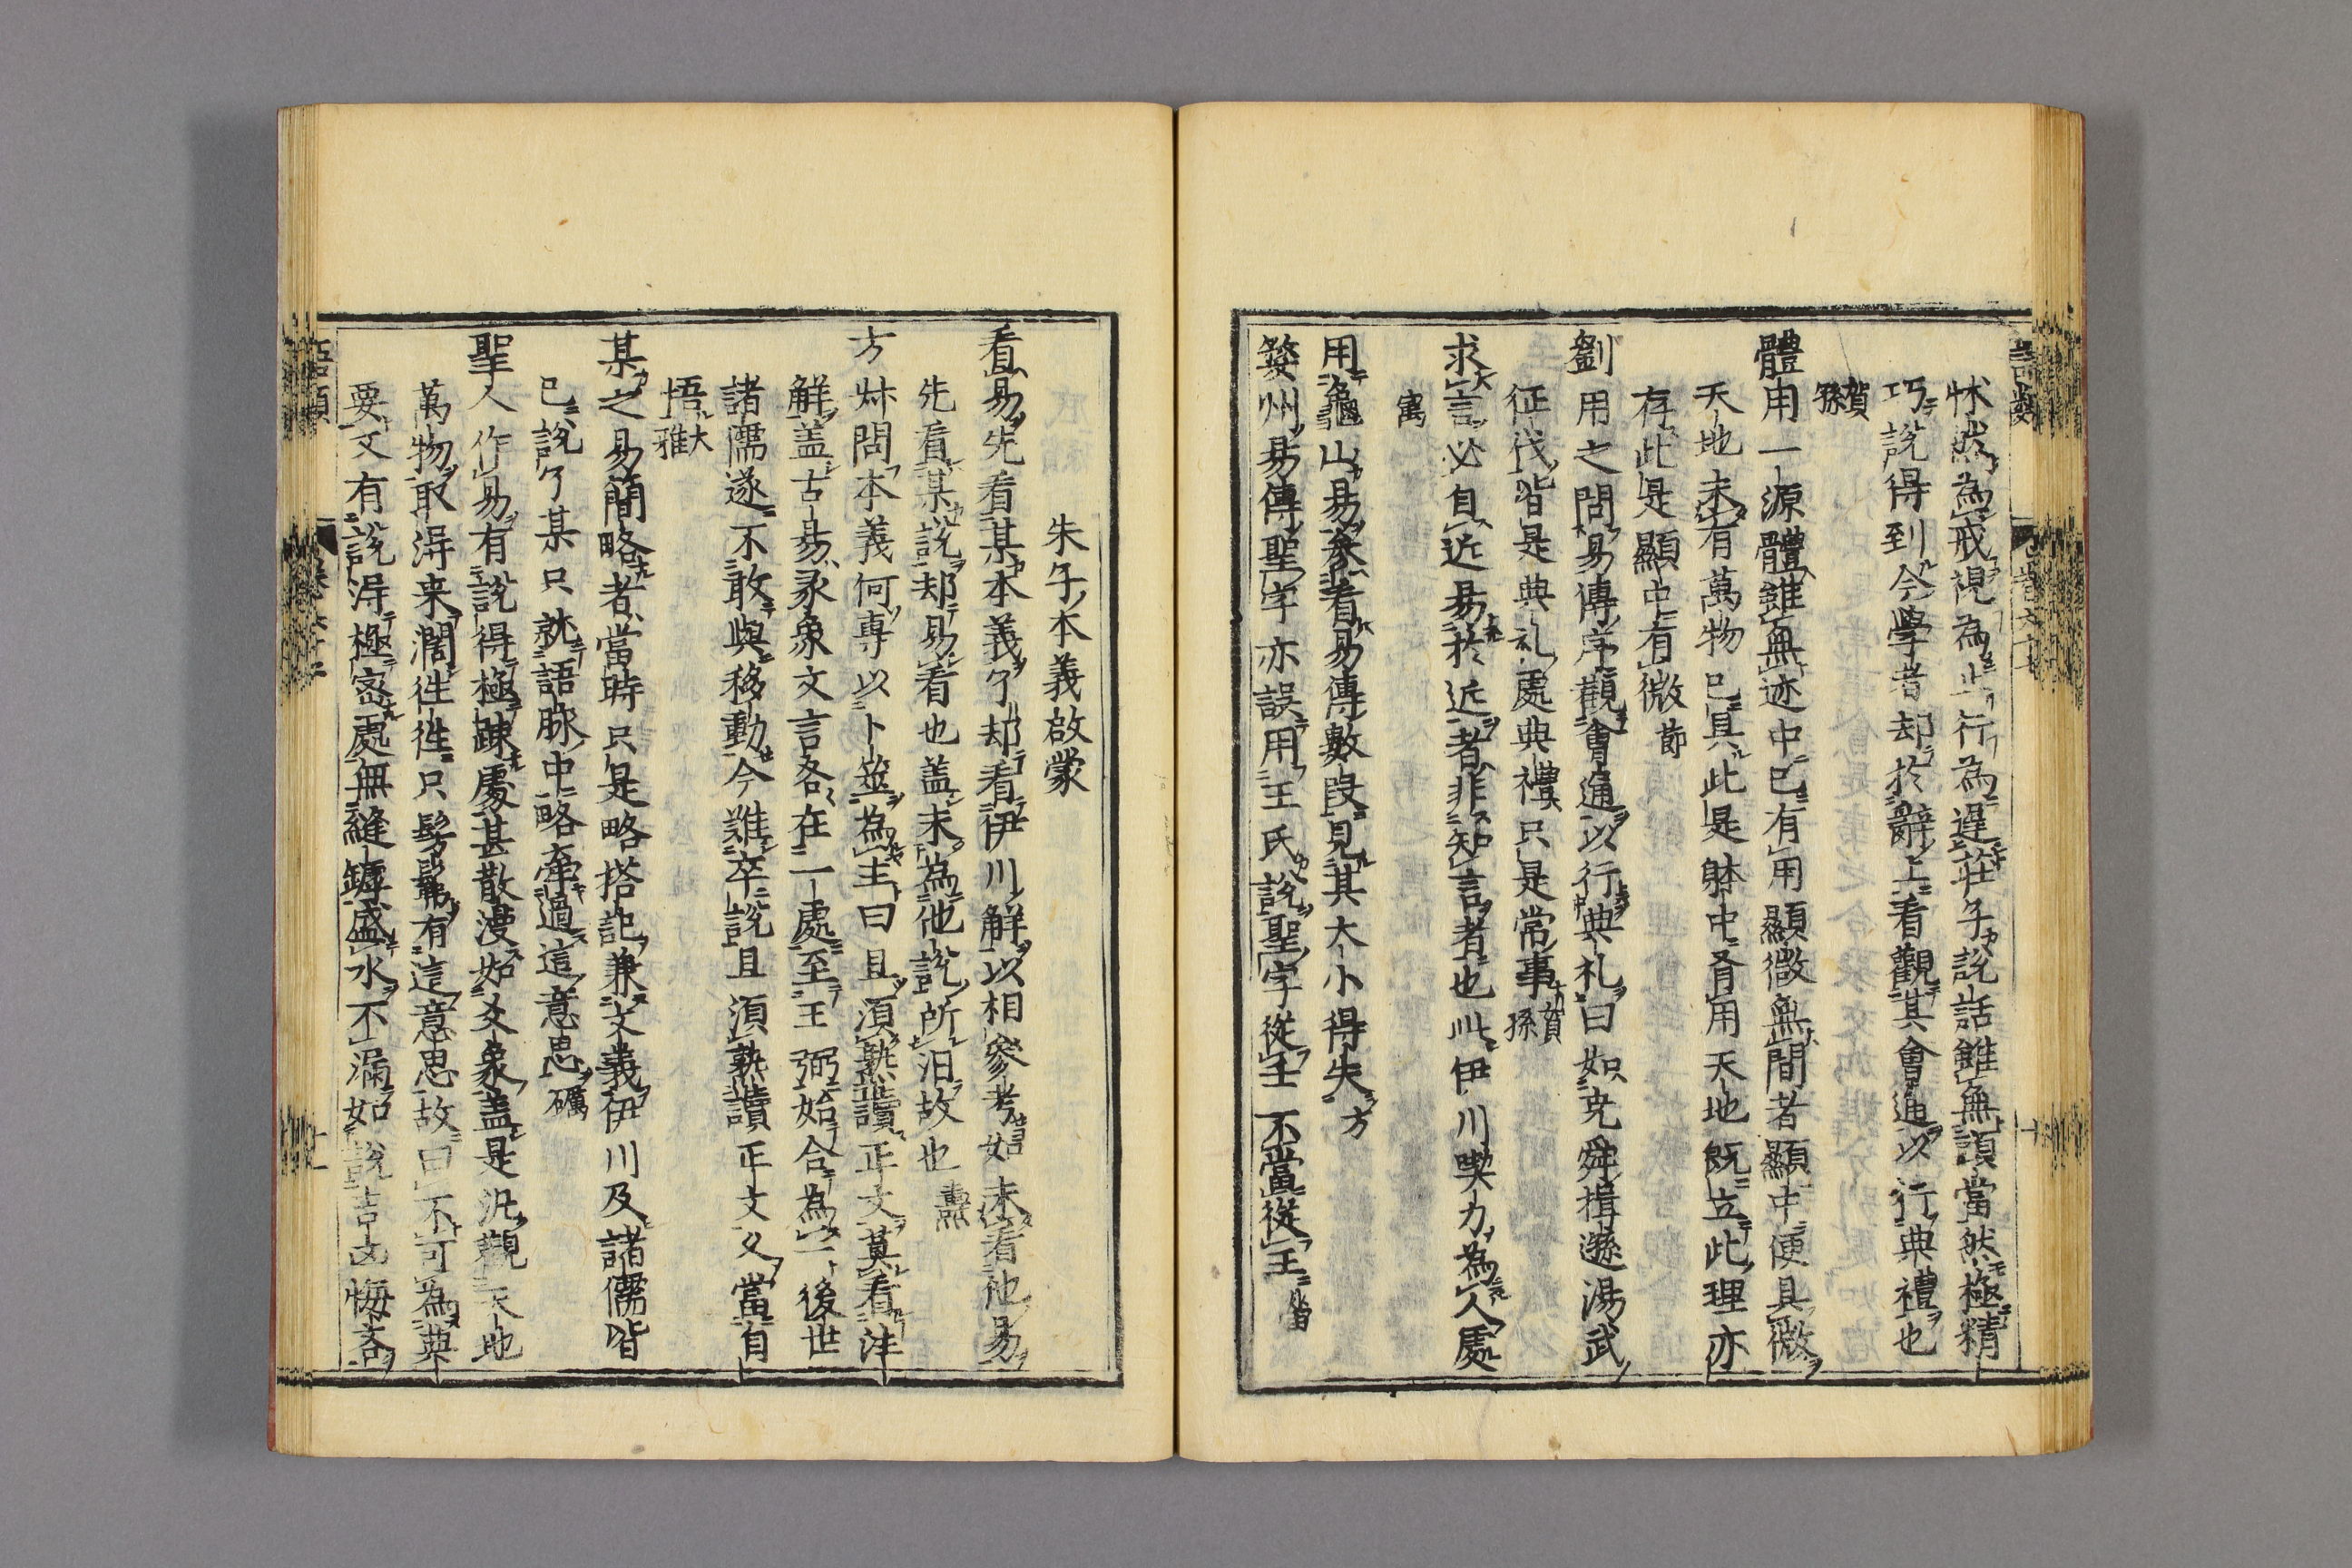 語類 卷六十七
怵然為戒視為止行為遲莊子說話雖無頭當然極精
巧說得到今學者却於辭上看觀其會通以行典禮也
賀孫
體用一源體雖無迹中已有用顯微無間者顯中便具微
天地未有萬物已具此是體中有用天地既立此理亦
存此是顯中有微 節
劉用之問易傳序觀會通以行典礼曰如尭舜揖遜湯武
征伐皆是典礼處典禮只是常事 賀孫
求言必自近易於近者非知言者也此伊川喫力為人處
㝢
用龜山易參看易傳數段見其大小得失 方
婺州易傳聖字亦誤用王氏說聖字從壬不當從王 㽦
朱子本義啟蒙
看易先看某本義了却看伊川解以相參考如未看他易
先看某說却易看也盖未為他說所汨故也 燾
方叔問本義何專以卜筮為主曰且湏熟讀正文莫看注
解盖古易彖象文言各在一處至王弼始合為一後世
諸儒遂不敢與移動今難卒說且湏熟讀正文久當自
悟 大雅
某之易簡略者當時只是略搭記兼文義伊川及諸儒皆
已說了某只就語脉中略牽過這意思 礪
聖人作易有說得極疎處甚散漫如爻象盖是汎觀天地
萬物取得来濶往往只髣髴有這意思故曰不可為典
要又有說得極密處無縫罅盛水不漏如說吉凶悔吝
語類